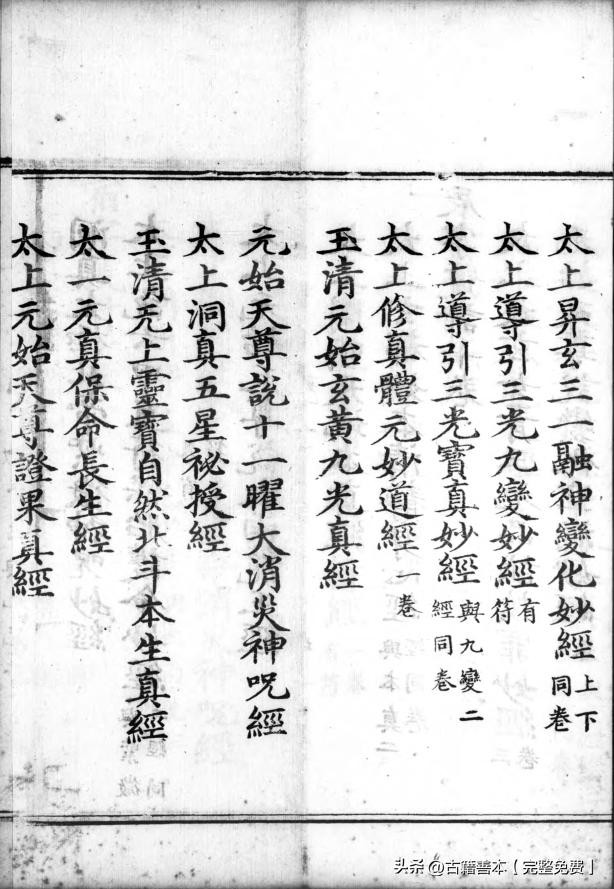 太上昇玄三一融神變化妙經上下同卷
太上導引三光九變妙經有符
太上導引三光寶真妙經與九變二經同卷
太上修真體元妙道經一卷
玉清元始玄黃九光真經
元始天尊說十一曜大消災神呪經
太上洞真五星祕授經
玉清无上靈寶自然北斗本生真經
太一元真保命長生經
太上元始天尊證果真經
头条@古籍善本【完整免费】